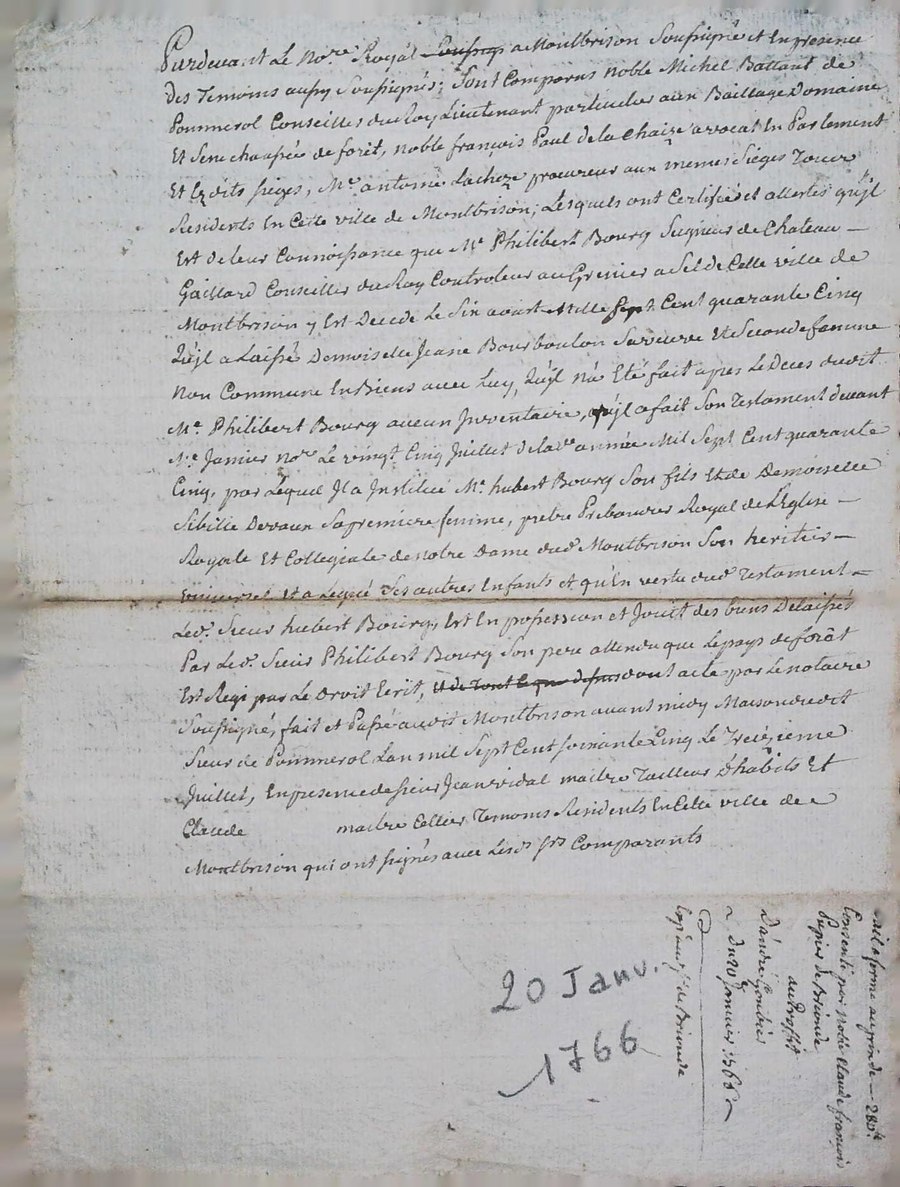 Pardevant Le No.re Royal Soussig a Montbrison Soussigné et En presence
des Temoins aussy Soussignés; Sont Comparus noble Michel Battant de
Pommerol Conseiller du Roy, Lieutenant particulier aux Baillage Domaine
Et Senechaussée de forêt, noble françois Paul de la Chaize avocat En Parlement
Et Esdits sieges, M.e antoine Lacheze procureur aux memes Sieges Tous
Residents En Cette ville de Montbrison; Lesquels ont Certifié et attestés qu'jl
Est de leur Connoissance que M.e Philibert Bourg Seigneur de Chateau —
Gaillard Conseiller du Roy Controleur au Grenier a Sel de Cette ville de
Montbrison y Est Decede Le Six aoust Mille Sept Cent quarante Cinq
Qu'jl a Laissé Demoiselle Jeane Bourboulon Sa veuve Et Seconde femme
Non Commune En Biens avec Luy, Qu'jl n'a Eté fait apres Le Deces dudit
M.e Philibert Bourg aucun Jnventaire, qu'jl a fait Son Testament devant
M.e Janier no.re Le vingt Cinq Juillet de lad. année Mil Sept Cent quarante
Cinq, par Lequel Jl a Jnstitué M.e hubert Bourg Son fils Et de Demoiselle
Sibille Devaux Sa premiere femme, pretre Prebandier Royal de L'Eglise —
Royale Et Collegiale de notre Dame dud. Montbrison Son heritier —
universel et a Legué Ses autres Enfants et qu'En vertu dud. Testament —
Led. Sieur hubert Bourg, Est En possession et Jouit des biens Delaissés
Par Led. Sieur Philibert Bourg Son pere attendu que Le pays de forêt
Est Regi par Le Droit Ecrit, et de Tout Ce que dessus dont acte par Le notaire
Soussigné, fait et Passé audit Montbrison avant midy Maison dudit
Sieur de Pommerol L'an mil Sept Cent soixante Cinq Le Treizieme
Juillet, En presence de sieur Jean vidal maitre Tailleur D'habits Et
Claude maitre Cellier Temoins Residents En Cette ville de
Montbrison qui ont signés avec Lesd. srs Comparants
20 Janv.
1766
au prin de — 280
Consenti par noble Claude françois
Papier de Brioude
au Proffit
D'andré
~ Du 20 Janvier 1766 ~
de Brioude